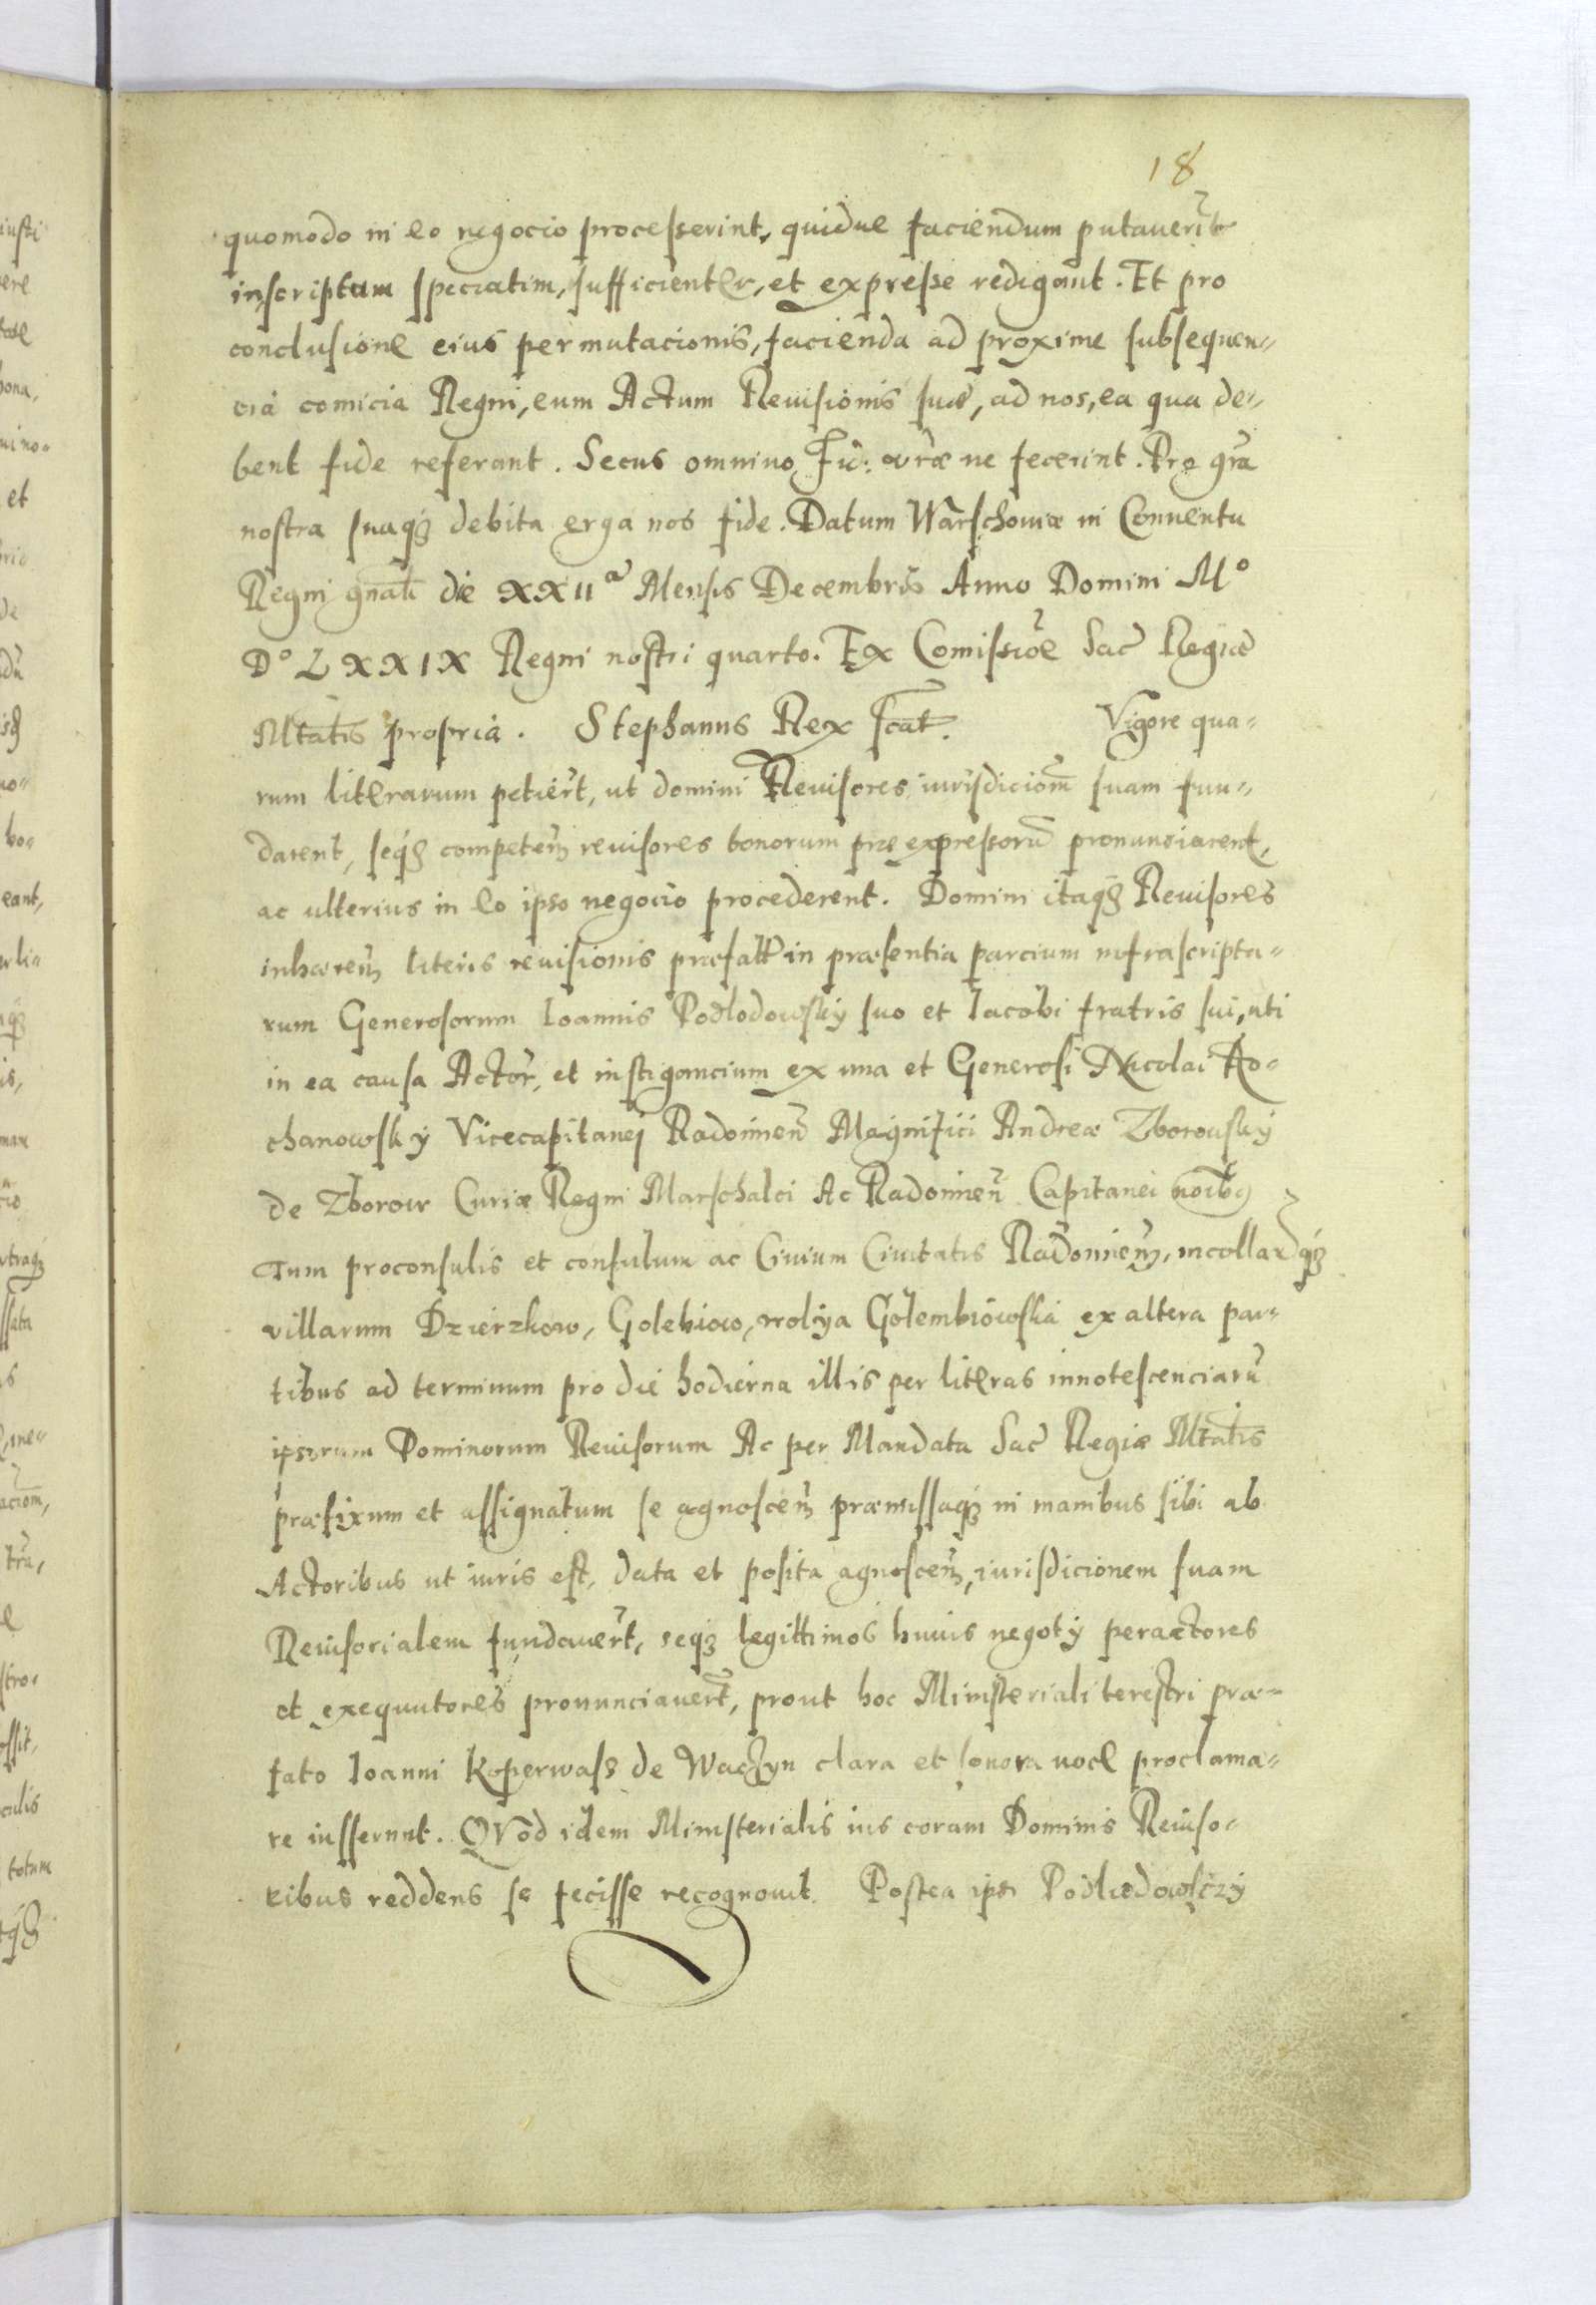 18
quomodo in eo negocio processerint, quidue faciendum putauerĩt
inscriptum speciatim, sufficienter, et expresse redigant. Et pro
conclusione eius permutacionis, facienda ad proxime subsequen-
cia comicia Regni, eum Actum Reuisionis suæ, ad nos, ea qua de-
bent fide referant. Secus omnino Fid: vræ ne fecerint. Pro gra
nostra suaqȝ debita erga nos fide. Datum Warschouiæ in Conuentu
Regni gnali die XXII a Mensis Decembris Anno Domini Mº
Dº LXXIX Regni nostri quarto. Ex Comissiõe Sac̃ Regiæ
Mtatis propria. Stephanus Rex scat. Vigore qua-
rum literarum petiert, ut domini Reuisores iurisdiciom̃ suam fun-
darent, seqȝ competeñ reuisores bonorum præexpressorũ pronunciarent,
ac ulterius in eo ipso negocio procederent. Domini itaqȝ Reuisores
inhæreñ literis reuisionis præfatt in præsentia parcium infrascripta-
rum Generosorum Ioannis Podlodowsky suo et Iacobi fratris sui, uti
in ea causa Actor, et instigancium ex una et Generosi Nicolai Ko-
chanowsky Vicecapitanej Radomień Magnifici Andreæ Zborowsky
de Zborow Curiæ Regni Marschalci Ac Radomień Capitanei noibȝ
Tum proconsulis et consulum ac Ciuium Ciuitatis Radomień, incollarqȝ
villarum Dzierzkow, Golebiow, wolya Golembiowska ex altera par-
tibus ad terminum pro die hodierna illis per literas innotescenciarũ
ipsorum Dominorum Reuisorum Ac per Mandata Sac̃ Regiæ Mtatis
præfixum et assignatum se agnosceñ præmissaqȝ in manibus sibi ab
Actoribus ut iuris est, data et posita agnosceñ, iurisdicionem suam
Reuisorialem fundauert, seqȝ legittimos huius negoty peractores
et exequutores pronunciauert, prout hoc Ministeriali terestri præ-
fato Ioanni Koperwass de Waczyn clara et sonora uoce proclama-
re iusserunt. QVod idem Ministerialis ius coram Dominis Reuiso-
ribus reddens se fecisse recognouit. Postea ipsi Podlodowsczy